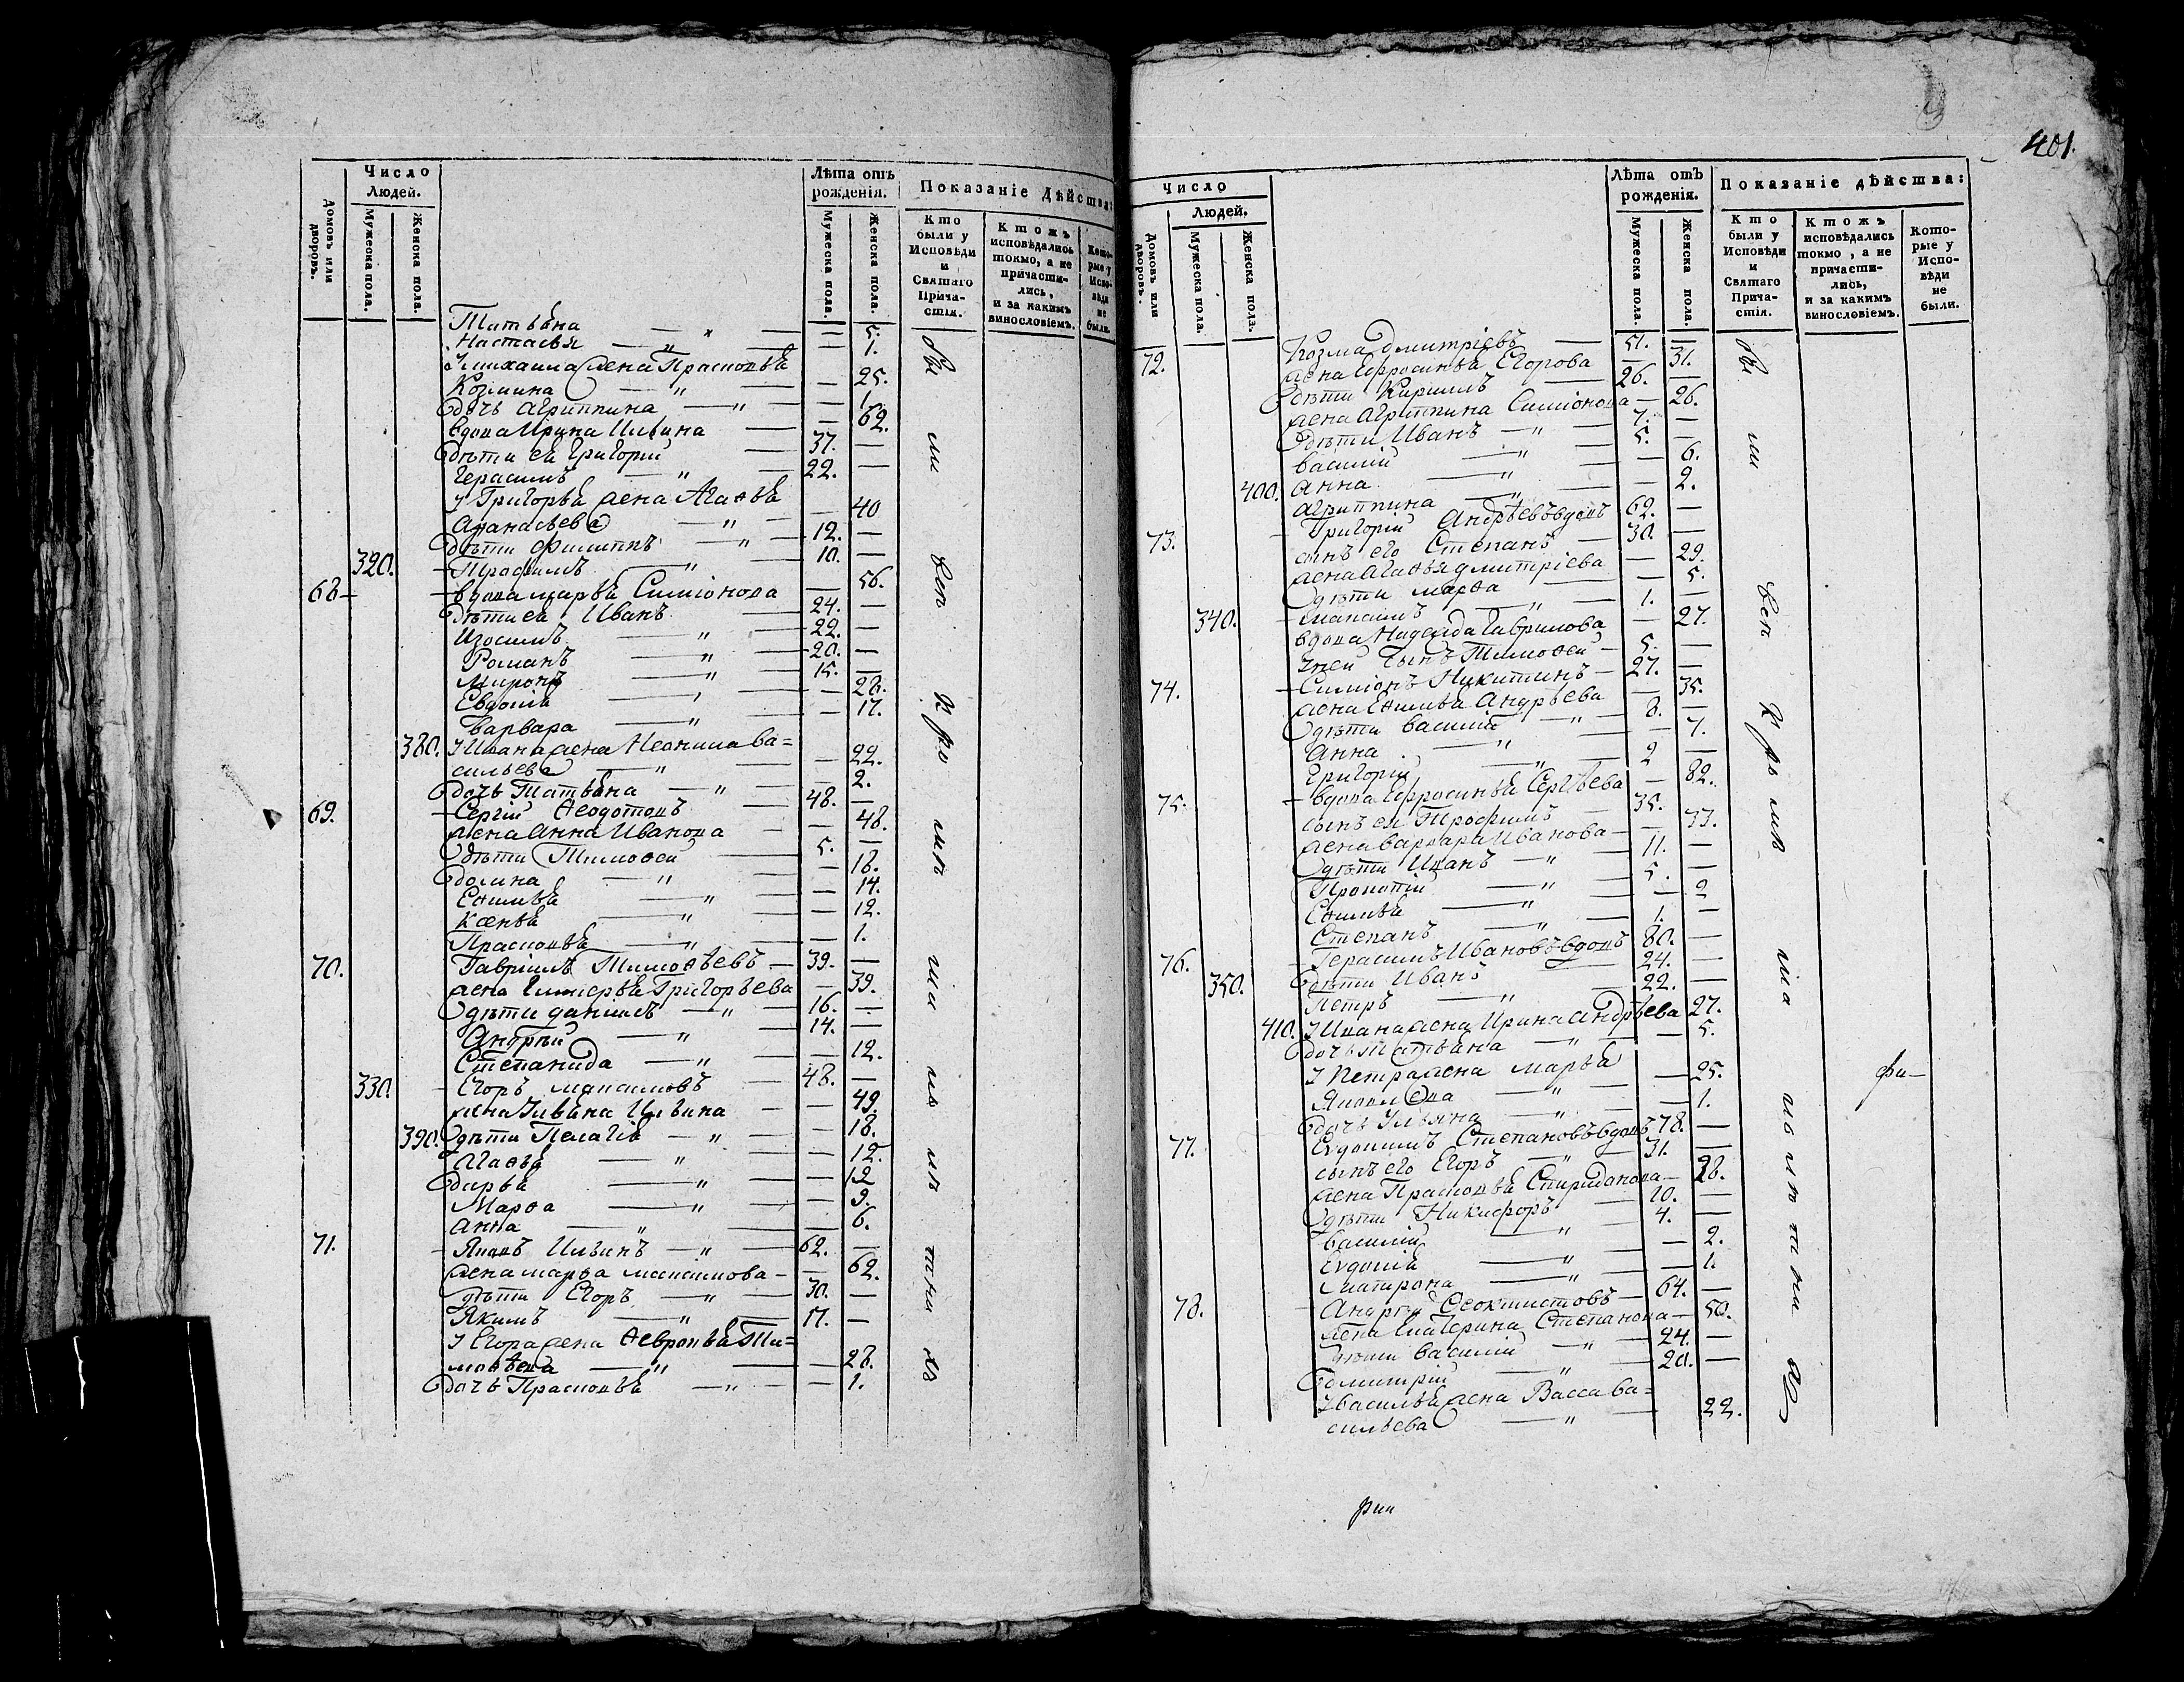 Число
Людей.
Домовъ или дворовъ.
Мужеска пола.
Женска пола.
Лѣта отъ рожденія.
Мужеска пола.
Женска пола.
Показаніе дѣйства:
Кто были у Исповѣди и Святаго Прича-стія.
Ктожъ исповѣдались токмо, а не причасти-лись, и за какимъ винословіемъ.
Кото-рые у Испо-вѣди не были.
Татьѣна — " — — 5.
Настасья — " — — 1.
У михаила жена Прасковьѣ
Козмина — " — — 25.
Дочь агриппина — " — — 1.
вдова Ирина Ильина — — 62.
Дѣти еѣ Григорій — 37. —
Герасимъ — " — 22. —
у Григорьѣ жена Агафьѣ
Афанасьева — " — — 40
Дѣти филиппъ — " — 12. —
320. Трофимъ — " — 10. —
68 вдова марьѣ Симіонова — 56.
Дѣти еѣ Иванъ — 24. —
Изосимъ — " — 22. —
Романъ — " — 20. —
Миронъ — " — 15. —
Евдокіѣ — " — — 28.
Варвара — " — — 17.
380. У Ивана жена Неонила Ва=
сильева — " — — 22.
Дочь Татьѣна — " — — 2.
69. Сергій Ѳедотовъ — 48. —
жена Анна Иванова — — 48.
Дѣти Тимоѳей — 5. —
Домна — " — — 18.
Ефимьѣ — " — — 14.
Ксеньѣ — " — — 12.
Прасковьѣ — " — — 1.
70. Гавріилъ Тимоѳѣевъ — 39. —
жена Гликерьѣ Григорьева — 39.
Дѣти данилъ — " — 16. —
Андрѣй — " — 14. —
Степанида — " — — 12.
330. Егоръ максимовъ — 48. —
жена Ульѣна Ильина — — 49
390. Дѣти Пелагіѣ — " — — 18.
Агафьѣ — " — — 12.
Дарьѣ — " — — 12
Марѳа — " — — 9.
Анна — " — — 6.
71. Яковъ Ильинъ — " — 62. —
жена марѳа максимова — — 62.
дѣти Егоръ — " — 30. —
Якимъ — " — 17. —
У Егора жена Ѳевроньѣ Ти=
моѳѣева — " — — 28.
Дочь Прасковьѣ — " — — 1.
401.
Число
Людей.
Домовъ или дворовъ.
Мужеска пола.
Женска пола.
Лѣта отъ рожденія.
Мужеска пола.
Женска пола.
Показаніе дѣйства:
Кто были у Исповѣди и Святаго Прича-стія.
Ктожъ исповѣдались токмо, а не причасти-лись, и за какимъ винословіемъ.
Кото-рые у Испо-вѣди не были.
72. Козма Дмитріевъ — 51. —
жена Ефросиньѣ Егорова — 31.
Дѣти Кирилъ — 26. —
жена Агриппина Симіонова — 26.
Дѣти Иванъ — " — 7. —
василій — " — 5. —
400. Анна — " — — 6.
Агриппина — " — — 2.
73. Григорій Андрѣевъ вдовъ 62. —
сынъ его Степанъ — 30. —
жена Агафья дмитріева — 29.
Дѣти марѳа — — 5.
340. максимъ — " — 1. —
вдова Надежда Гаврилова — 27.
У ней сынъ Тимоѳей — 5. —
74. Симіонъ Никитинъ — 27. —
жена Ефимьѣ Андрѣева — 35.
Дѣти василій — " — 8. —
Анна — " — — 7.
Григорій — " — 2 —
75. вдова Ефросиньѣ Сергѣева — 82.
сынъ ея Трофимъ — 35. —
жена варвара Иванова — 33.
Дѣти Иванъ — " — 11. —
Прокопій — " — 5. —
Ефимьѣ — " — — 2
Степанъ — " — 1. —
76. Герасимъ Ивановъ вдовъ 80. —
350. Дѣти Иванъ — 24. —
Петръ — " — 22. —
410. У Ивана жена Ирина Андрѣева 27.
Дочь Татьѣна — " — — 5.
У Петра жена марьѣ
Яковлева — " — — 25.
Дочь Ульяна — " — — 1.
77. Евдокимъ Степановъ вдовъ 78. —
сынъ его Егоръ — " — 31. —
жена Прасковьѣ Спиридонова — 28.
Дѣти Никифоръ — 10. —
василій — " — 4. —
Евдокіѣ — " — — 2.
матрона — " — — 1.
78. Андрѣй Ѳеоктистовъ — 64. —
жена Екатерина Степанова — 50.
дѣти василій — " — 24. —
Дмитрій — " — 20. —
У василья жена Васса Ва=
сильева — " — 22.